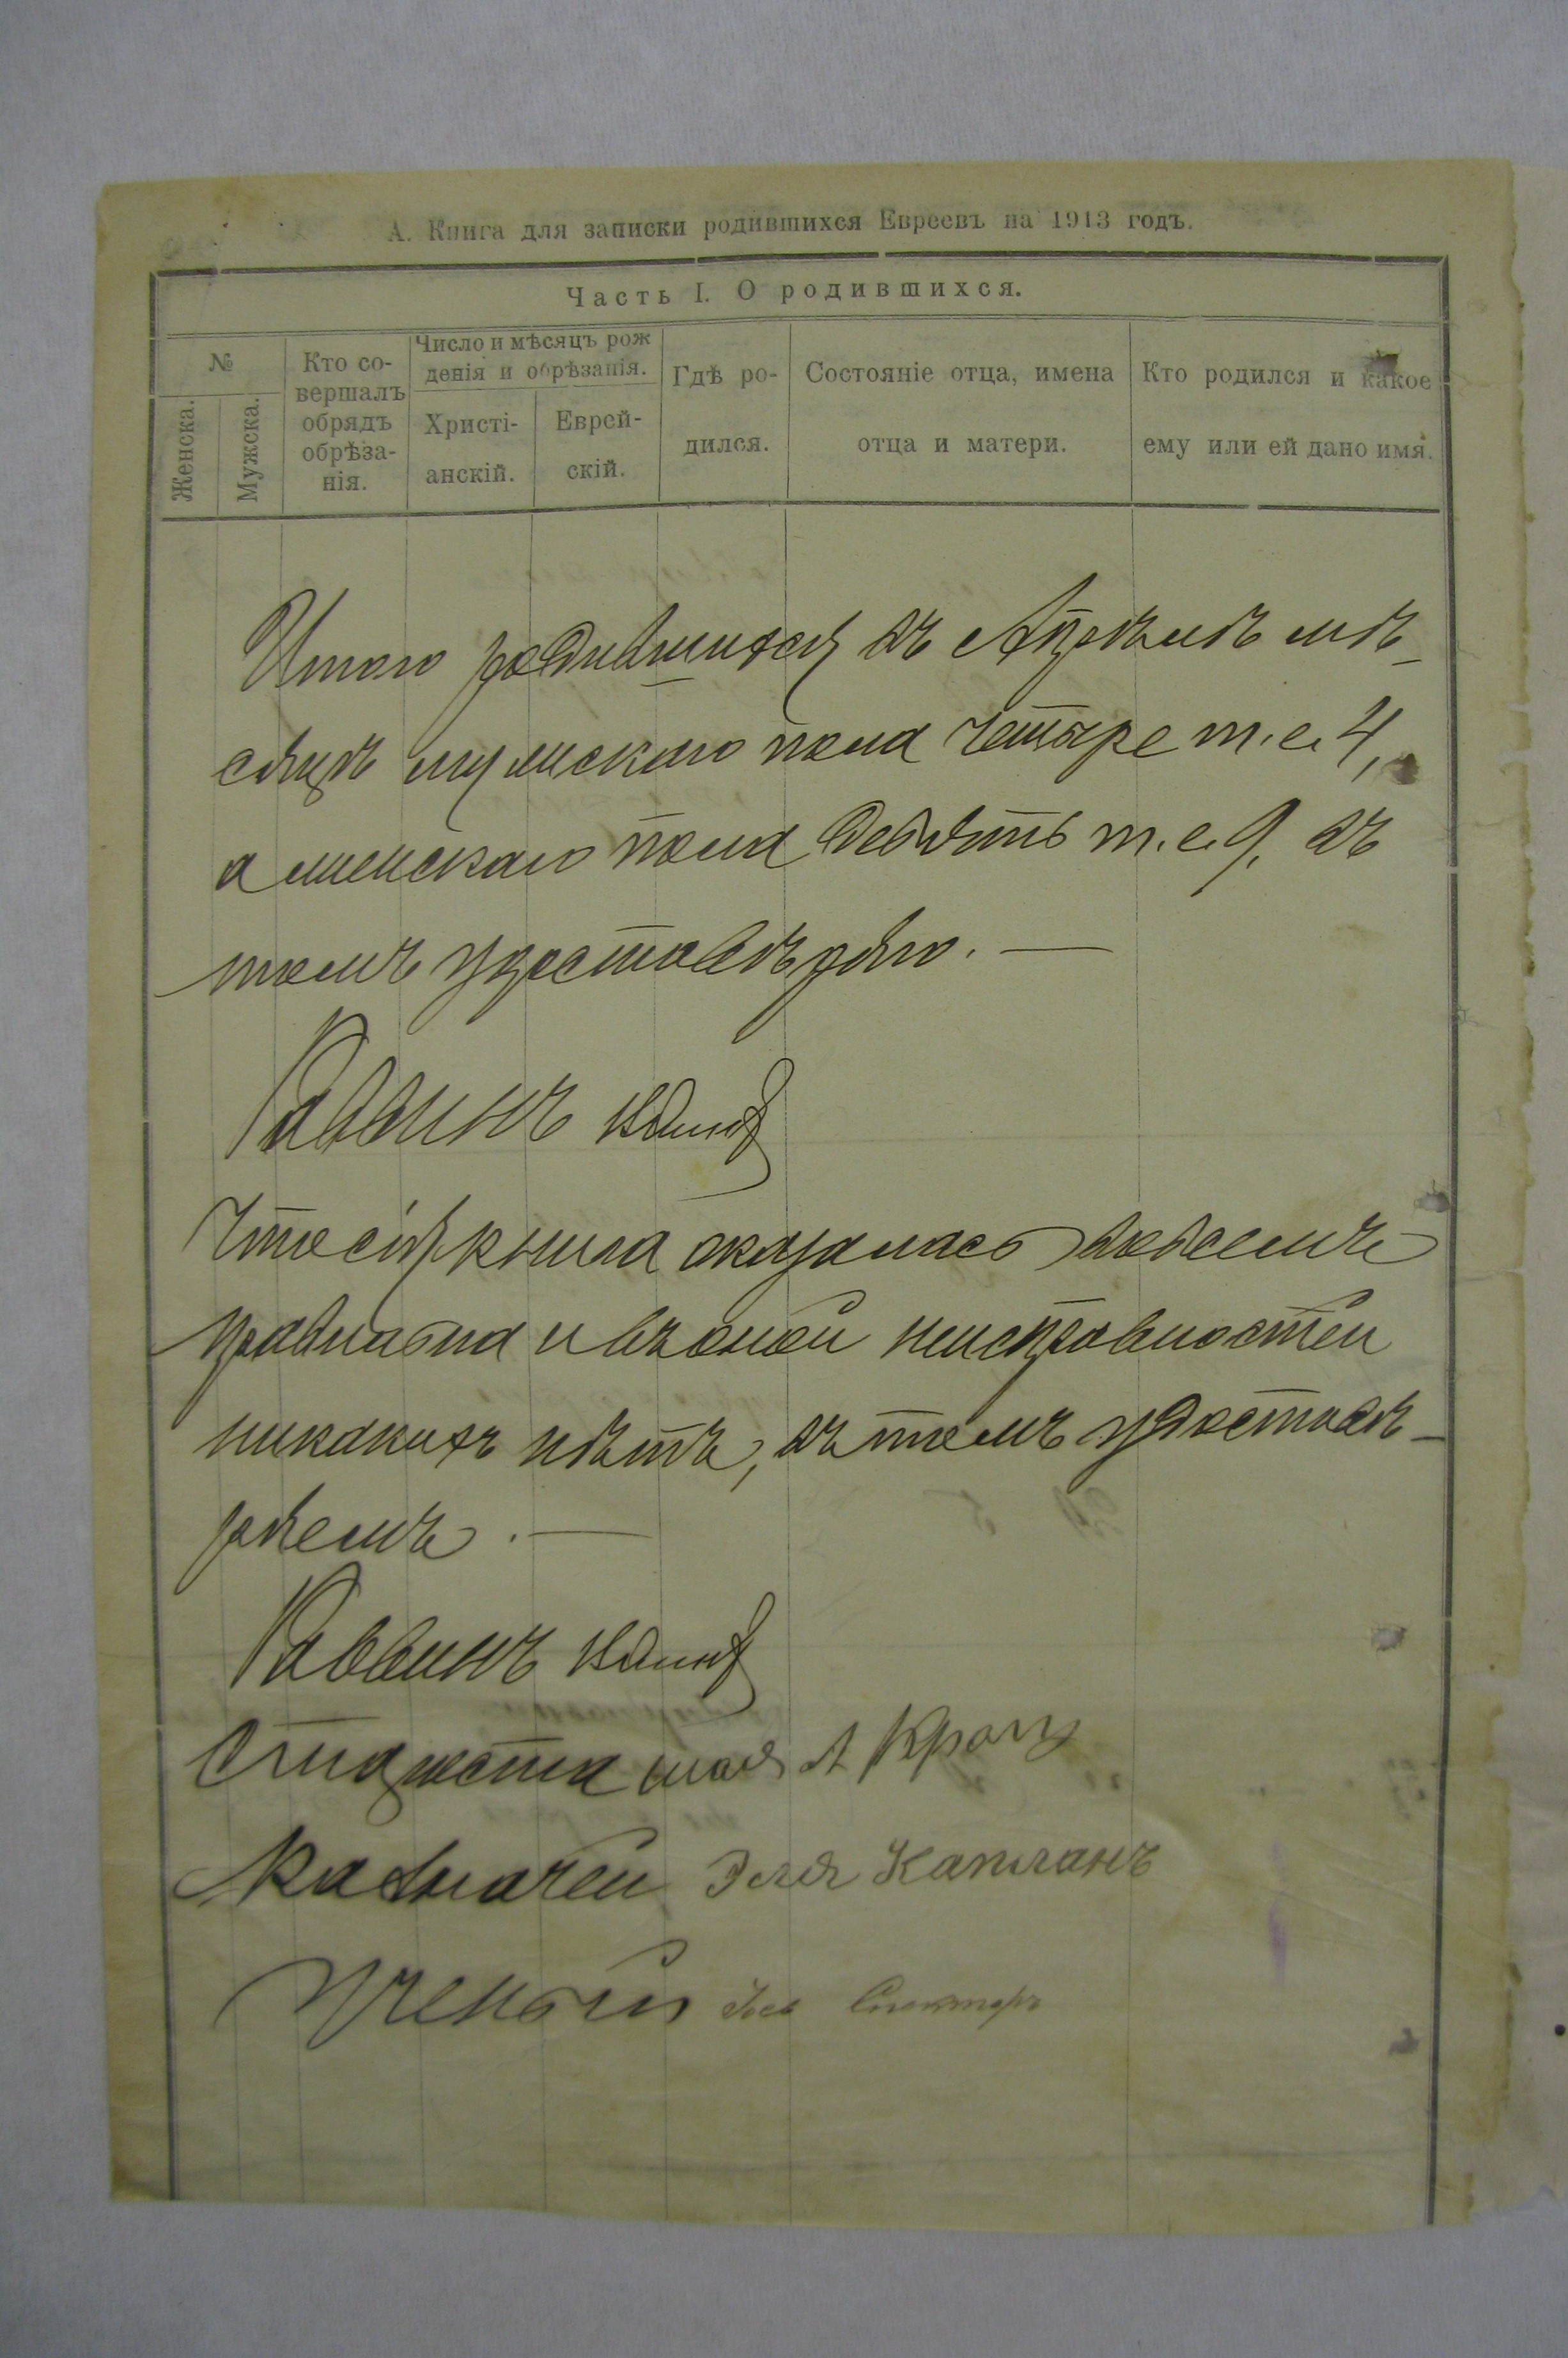 А. Книга для записки родившихся Евреевъ на 1913 годъ.
Часть I. О родившихся.
№
Женска.
Мужска.
Кто со-
вершалъ
обрядъ
обрѣза-
нія.
Число и мѣсяцъ рож
денія и обрѣзанія.
Христі-
анскій.
Еврей-
скій.
Гдѣ ро-
дился.
Состояніе отца, имена
отца и матери.
Кто родился и какое
ему или ей дано имя.
Итого родившихся въ Апрѣлѣ мѣ-
сяцѣ мужскаго пола четыре т. е. 4,
а женскаго пола девять т. е. 9, въ
томъ удостовѣряю. —
Раввинъ
Что сія книга оказалась во всемъ
правильна и въ оной неисправностей
никакихъ нѣтъ, въ томъ удостовѣ-
ряемъ. —
Раввинъ
Староста
Казначей Эля Капланъ
Ученый Спекторъ